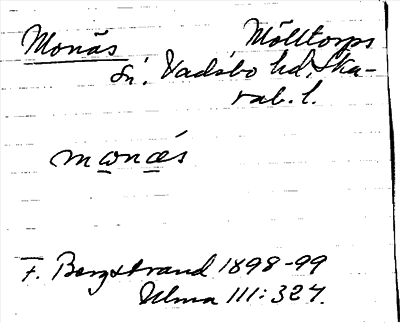 Monås Mölltorps
sn. Vadsbo hd. Ska-
rab. l.
monås
F. Bergstrand 1898-99
Ulma 111:327.